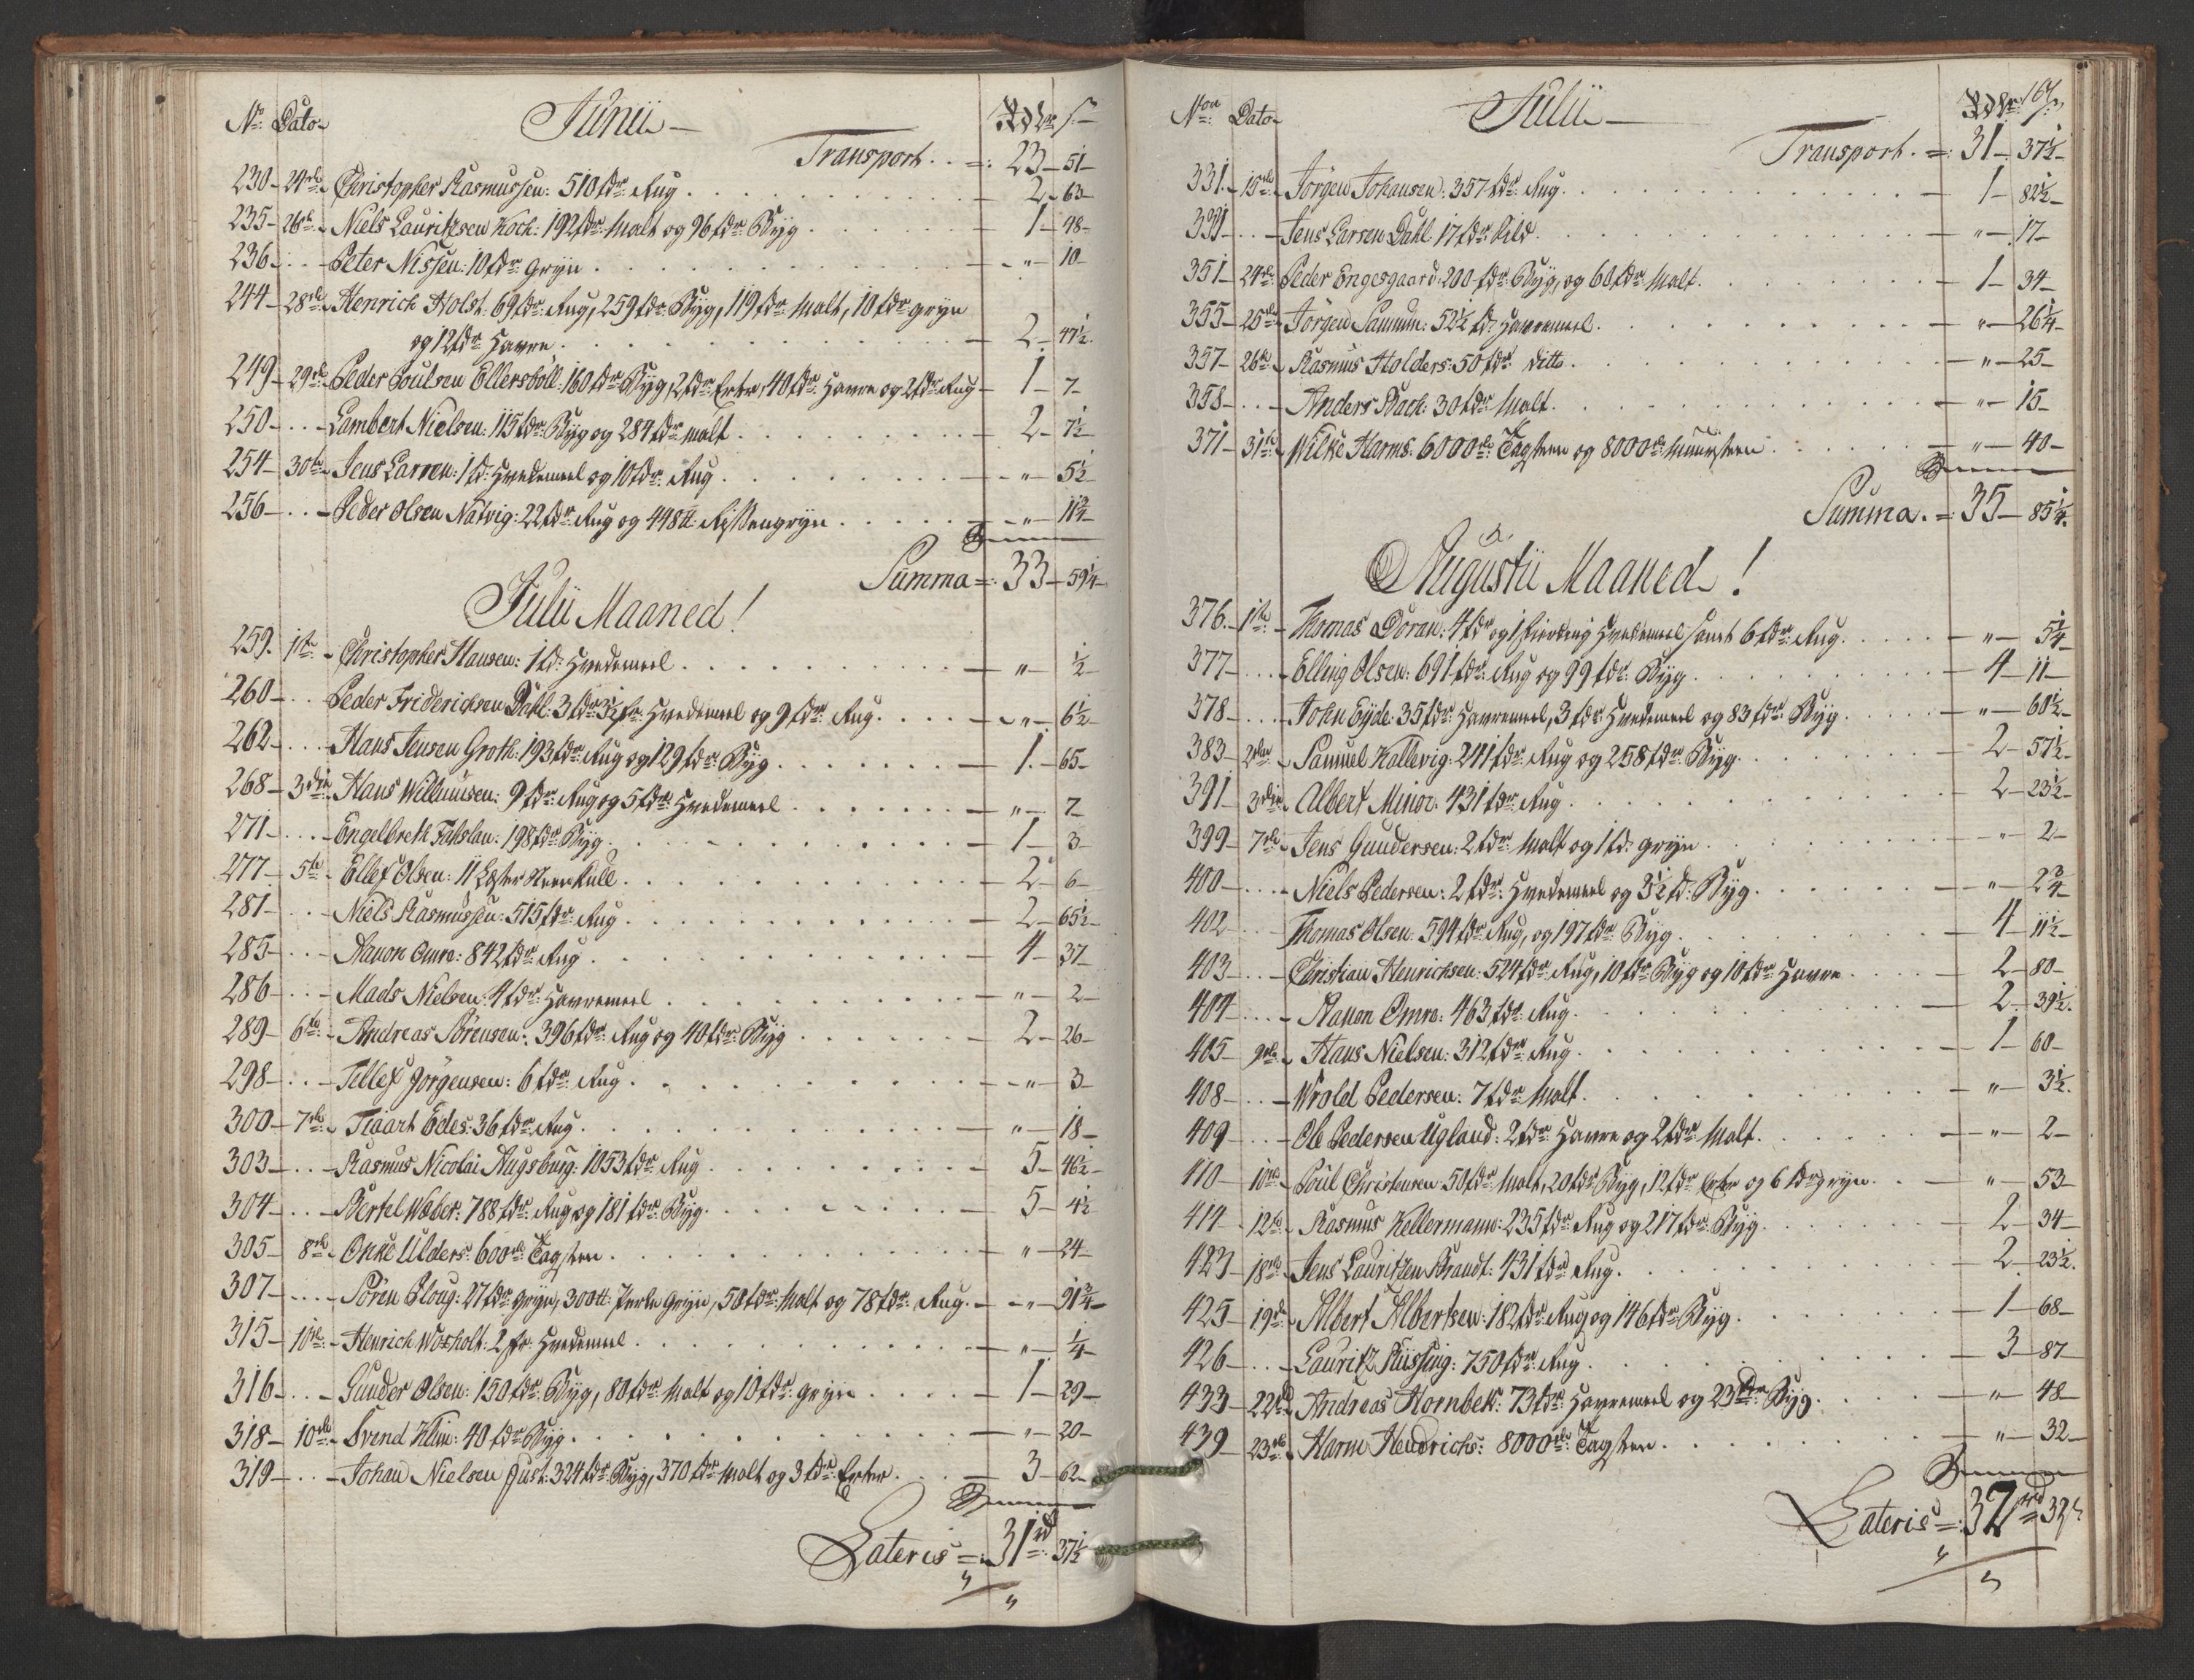 No: Dato. Junii Rdlr s
Transport. =: 23 - 51
230 - 24de Christopher Rasmussen: 510 tdr Rug . . . 2 - 63
235 - 26de Niels Lauritzsen Koch: 192 tdr Malt og 96 tdr Byg . . . 1 - 48
236 . . Peter Nissen: 10 tdr Gryn . . . " - 10
244 - 28de Henrich Holst: 69 tdr Rug, 259 tdr Byg, 119 tdr Malt, 10 tdr gryn
og 12 tdr Havre . . . 2 - 47½
249 - 29de Peder Poulsen Ellersböll: 160 tdr Byg, 2 tdr Erter, 40 tdr Havre og 2 tdr Rug - 1 - 7
250 . . Lambert Nielsen: 115 tdr Byg og 284 tdr malt . . . 2 - 7½
254 - 30te Jens Larsen: 1 td Hvedemeel og 10 tdr Rug . . . " - 5½
256 . . Peder Olsen Natvig: 22 tdr Rug og 448 ℔ Risengryn . . . " - 11¾
Summa =: 33 - 59¼
Julii Maaned!
259. 1ste Christopher Hansen: 1 td Hvedemeel . . . " - ½
260 . . Peder Friderichsen Dahl: 3 tdr 3½ fr Hvedemeel og 9 tdr Rug . . . " - 6½
262 . . Hans Jensen Groth: 193 tdr Rug og 129 tdr Byg . . . 1 - 65
268 - 3die Hans Willumsen: 9 tdr Rug og 5 tdr Hvedemeel . . . " - 7
271 . . Engelbreth Falsslan: 198 tdr Byg . . . 1 - 3
277 - 5te Ellef Olsen: 11 Lester Steen Kull . . . 2 - 6
281 . . Niels Rasmussen: 515 tdr Rug . . . 2 - 65½
285 . . Nanon Omre: 842 tdr Rug . . . 4 - 37
286 . . Mads Nielsen: 4 tdr Havremeel . . . " - 2
289 - 6te Andreas Sörensen: 396 tdr Rug og 40 tdr Byg . . . 2 - 26
298 . . Tellef Jörgensen: 6 tdr Rug . . . " - 3
300 - 7de Tiaart Edes: 36 tdr Rug . . . " - 18
303 . . Rasmus Nicolai Augsburg: 1053 tdr Rug . . . 5 - 46½
304 . . Bertel Weber: 788 tdr Rug og 181 tdr Byg . . . 5 - 4½
305 - 8de Onke Ulders: 600de Tagsten . . . " - 24
307 . . Sören Ploug: 27 tdr gryn, 300 ℔ Perle Gryn, 58 tdr Malt og 78 tdr Rug . - " - 91¾
315 - 10de Henrich Woxholt: 2 fr Hvedemeel . . . " - ¼
316 . . Gunder Olsen: 150 tdr Byg, 80 tdr Malt og 10 tdr gryn . . . 1 - 29
318 - 10de Svend Klim: 40 tdr Byg . . . " - 20
319 . . Johan Nielsen Just: 324 tdr Byg, 370 tdr Malt og 3 tdr Erter . . . 3 - 62
Lateris =: 31rd 37½
Non Dato Julii Rdlr 167. s
Transport. =: 31 - 37½
331 - 15de Jörgen Johansen: 357 tdr Rug . . . 1 - 82½
339 . . Jens Larsen Dahl: 17 tdr Sild . . . " - 17
351 - 24de Peder Engesgaard: 200 tdr Byg, og 60 tdr Malt . . . 1 - 34
355 - 25de Jörgen Samum: 52½ td Havremeel . . . " - 26¼
357 - 26de Rasmus Holders: 50 tdr ditto . . . " - 25
358 . . Anders Bach: 30 tdr Malt . . . " - 15
371 - 31te Wilke Harms: 6000de Tagsten og 8000de Muursteen . . . " - 40
Summa. =: 35 - 85¼
Augustii Maaned!
376 - 1ste Thomas Doran: 4 tdr og 1 fierding Hvedemeel samt 6 tdr Rug . . . " - 5¼
377 . . Elling Olsen: 691 tdr Rug og 99 tdr Byg . . . 4 - 11
378 . . John Eyde: 35 tdr Havremeel, 3 tdr Hvedemeel og 83 tdr Byg . . . " - 60½
383 - 2den Samuel Kallevig: 241 tdr Rug og 258 tdr Byg . . . 2 - 57½
391 - 3die Albert Minor: 431 tdr Rug . . . 2 - 23½
399 - 7de Jens Gundersen: 2 tdr Malt og 1 td gryn . . . " - 2
400 . . Niels Pedersen: 2 tdr Hvedemeel og 3½ td Byg . . . " - 2¾
402 . . Thomas Olsen: 594 tdr Rug, og 197 tdr Byg . . . 4 - 11½
403 . . Christian Henrichsen: 524 tdr Rug, 10 tdr Byg og 10 tdr Havre . . . 2 - 80
404 . . Nanon Omre: 463 tdr Rug . . . 2 - 39½
405 - 9de Hans Nielsen: 312 tdr Rug . . . 1 - 60
408 . . Wrold Pedersen: 7 tdr Malt . . . " - 3½
409 . . Ole Pedersen Ugland: 2 tdr Havre og 2 tdr Malt . . . " - 2
410 - 10de Poul Christensen: 50 tdr Malt, 20 tdr Byg, 12 tdr Erter og 6 tdr gryn . . " - 53
414 - 12te Rasmus Kellermann: 235 tdr Rug og 217 tdr Byg . . . 2 - 34
423 - 18de Jens Lauritzen Brandt: 431 tdr Rug . . . 2 - 23½
425 - 19de Albert Albertsen: 182 tdr Rug og 146 tdr Byg . . . 1 - 68
426 . . Lauritz Küssing: 750 tdr Rug . . . 3 - 87
433 - 22de Andreas Hornbek: 73 tdr Havremeel og 23 tdr Byg . . . " - 48
439 - 23de Harm Hendrichs: 8000de Tagsten . . . " - 32
Lateris =: 32rd 32s